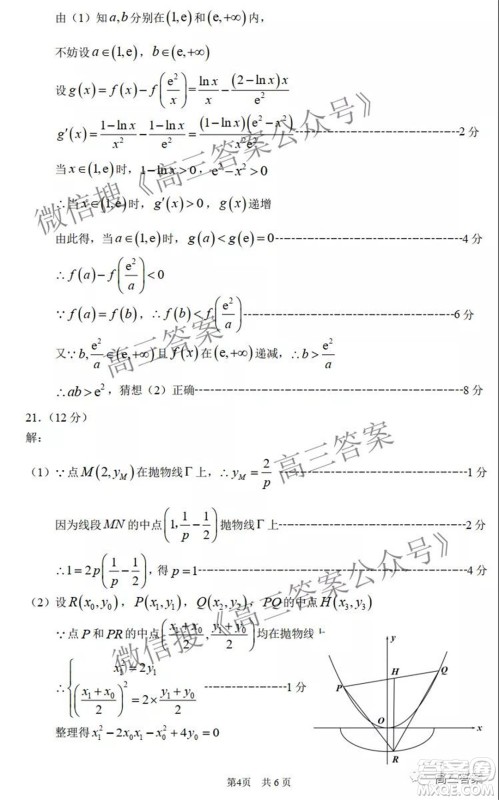 由（1）知 a,b 分别在(1,e)和(e,+∞)，
不妨设 a∈(1,e)，b∈(e,+∞)
设 g(x)=f(x)-f(e²/x)=lnx/x-(2-lnx)x/e²
g′(x)=(1-lnx)/x²-(1-lnx)/e²=(1-lnx)(e²-x²)/x²e² 2分
当 x∈(1,e)时，1-lnx>0，e²-x²>0，
∴当x∈(1,e)时，g′(x)>0，g(x)递增
由此得，当 a∈(1,e)时，g(a)<g(e)=0 4分
∴f(a)-f(e²/a)<0
∵f(a)=f(b)，∴f(b)<f(e²/a) 6分
又∵b,e²/a∈(e,+∞)且f(x)在(e,+∞)递减，∴b>e²/a
∴ab>e²，猜想（2）正确 8分
21.（12 分）
解：
（1）∵点M(2,y_M)在抛物线Γ上，∴y_M=2/p 1分
因为线段 MN 的中点(1,1/p-1/2)抛物线Γ上 2分
∴1=2p(1/p-1/2)，得 p=1 4分
（2）设R(x₀,y₀)，P(x₁,y₁)，Q(x₂,y₂)，PQ的中点H(x₃,y₃)
∵点 P 和 PR 的中点(x₁+x₀/2,y₁+y₀/2)均在抛物线
∴{x₁²=2y₁
((x₁+x₀)/2)²=2×(y₁+y₀)/2 1分
整理得 x₁²-2x₀x₁-x₀²+4y₀=0
y
H
Q
P
O
x
R
第4页 共6页
微信搜《高三答案公众号》
高三答案
高三答案
微信搜《高三答案公众号》
高三答案